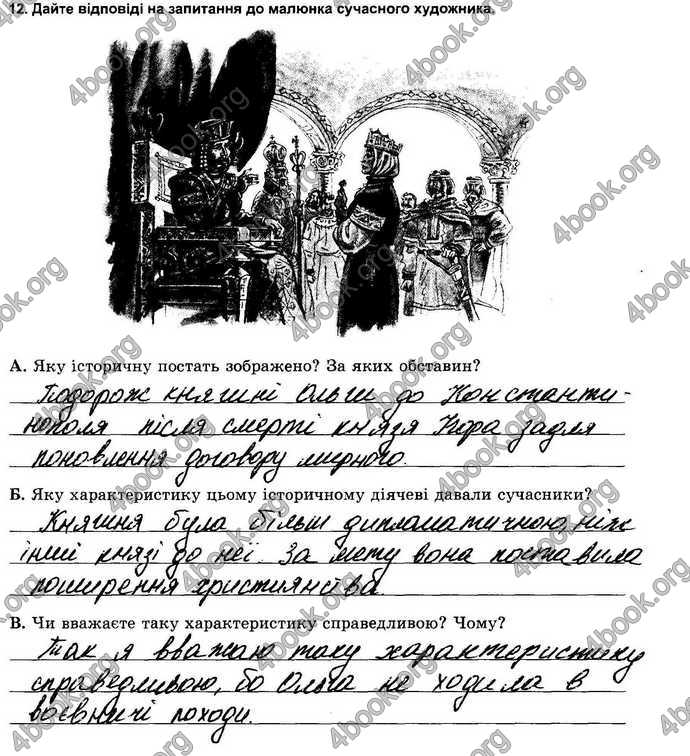 12. Дайте відповіді на запитання до малюнка сучасного художника.
А. Яку історичну постать зображено? За яких обставин?
Подорож княгині Ольги до Константи-
нополя після смерті князя Ігора задля
поновлення договору мирного.
Б. Яку характеристику цьому історичному діячеві давали сучасники?
Княгиня була більш дипломатичною, ніж
інші князі до неї. За мету вона поставила
поширення християнства.
В. Чи вважаєте таку характеристику справедливою? Чому?
Так я вважаю таку характеристику
справедливою, бо Ольга не ходила в
воєвничі походи.
4book.org